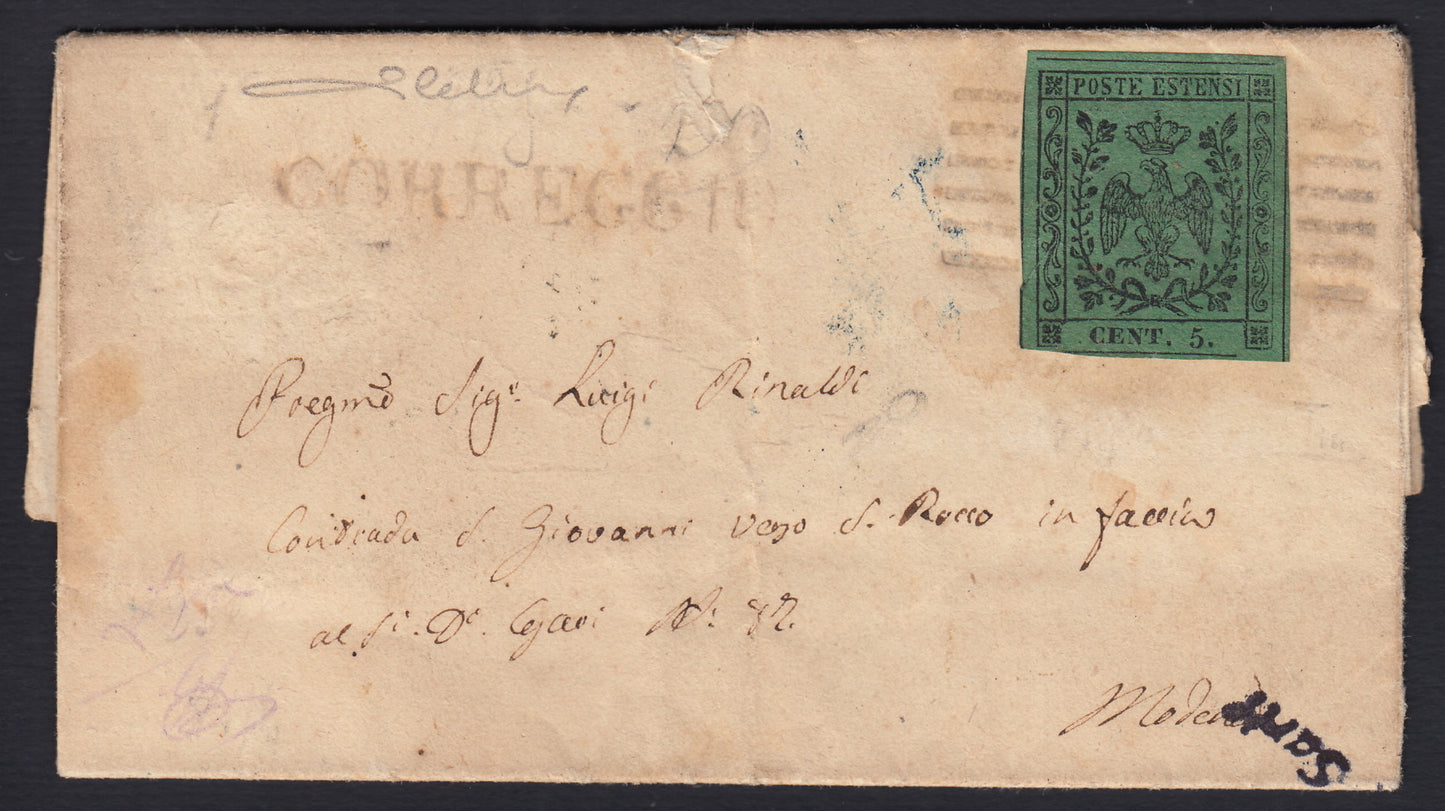 CORREGGIO
POSTE ESTENSI
CENT. 5.
Pregmo Sigr. Luigi Rinaldi
Contrada S. Giovanni verso S. Rocco in faccia
al Si. Dr. N: 87.
Modena